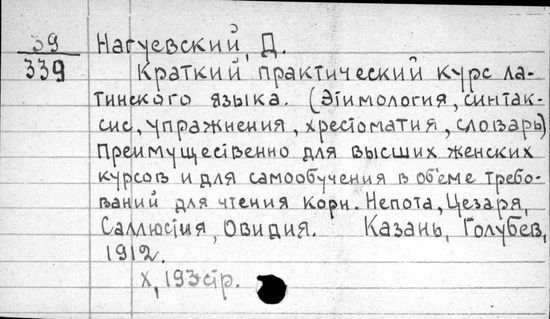 39
339
Нагуевский, Д.
Краткий практический курс ла-
тинского языка. (Этимология, синтак-
сис, упражнения, хрестоматия, словарь)
Преимущественно для высших женских
курсов и для самообучения в объеме требо-
ваний для чтения Корн. Непота, Цезаря,
Саллюстия, Овидия. Казань, Голубев,
1912.
X, 193 стр.